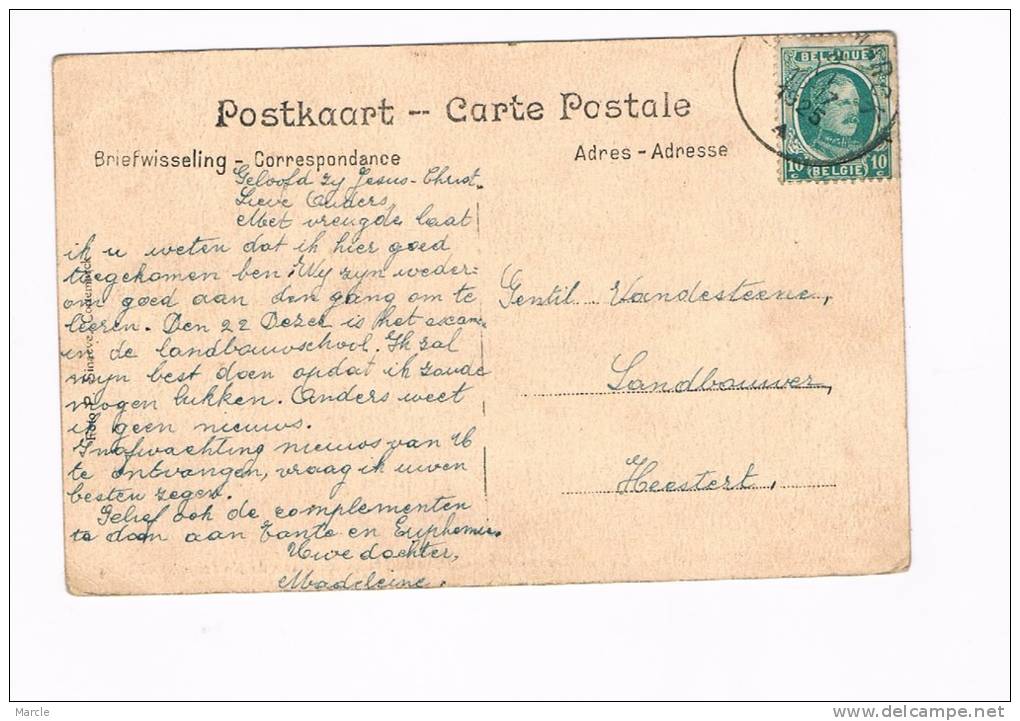 BELGIQUE
10 c 10 c
BELGIË
Postkaart -- Carte Postale
Briefwisseling - Correspondance
Adres - Adresse
Geloofd zy Jesus-Christ.
Lieve Ouders,
Met vreugde laat
ik u weten dat ik hier goed
toegekomen ben. Wy zyn weder=
om goed aan den gang om te
leeren. Den 22 Dezer is het exam
in de landbouwschool. Ik zal
myn best doen opdat ik zoude
mogen lukken. Anders weet
ik geen nieuws.
In afwachting nieuws van U
te ontvangen, vraag ik uwen
besten zegen.
Gelief ook de complementen
te doen aan Tante en Euphemie.
Uwe dochter,
Madeleine.
Gentil Vandesteene,
Landbouwer,
Heestert,
Foto Sinaeve, Cortemarck
Marcle
delcampe.net